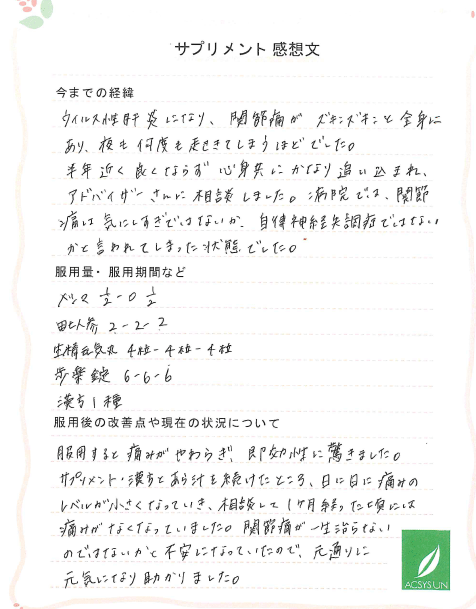 サプリメント 感想文
今までの経緯
ウイルス性肝炎になり、関節痛が ズキンズキンと全身に
あり、夜も何度も起きてしまうほどでした。
半年近く良くならず 心身共にかなり追い込まれ、
アドバイザーさんに相談しました。病院では、関節
痛は気にしすぎではないか、自律神経失調症ではない
かと言われてしまった状態でした。
服用量・服用期間など
1/2-0 1/2
田七人参 2-2-2
4粒-4粒-4粒
歩楽錠 6-6-6
漢方1種
服用後の改善点や現在の状況について
服用すると痛みがやわらぎ、即効性に驚きました。
サプリメント・漢方とあら汁を続けたところ、日に日に痛みの
レベルが小さくなっていき、相談して1ヶ月経った頃には
痛みがなくなっていました。関節痛が一生治らない
のではないかと不安になっていたので、元通りに
元気になり助かりました。
ACSYSUN